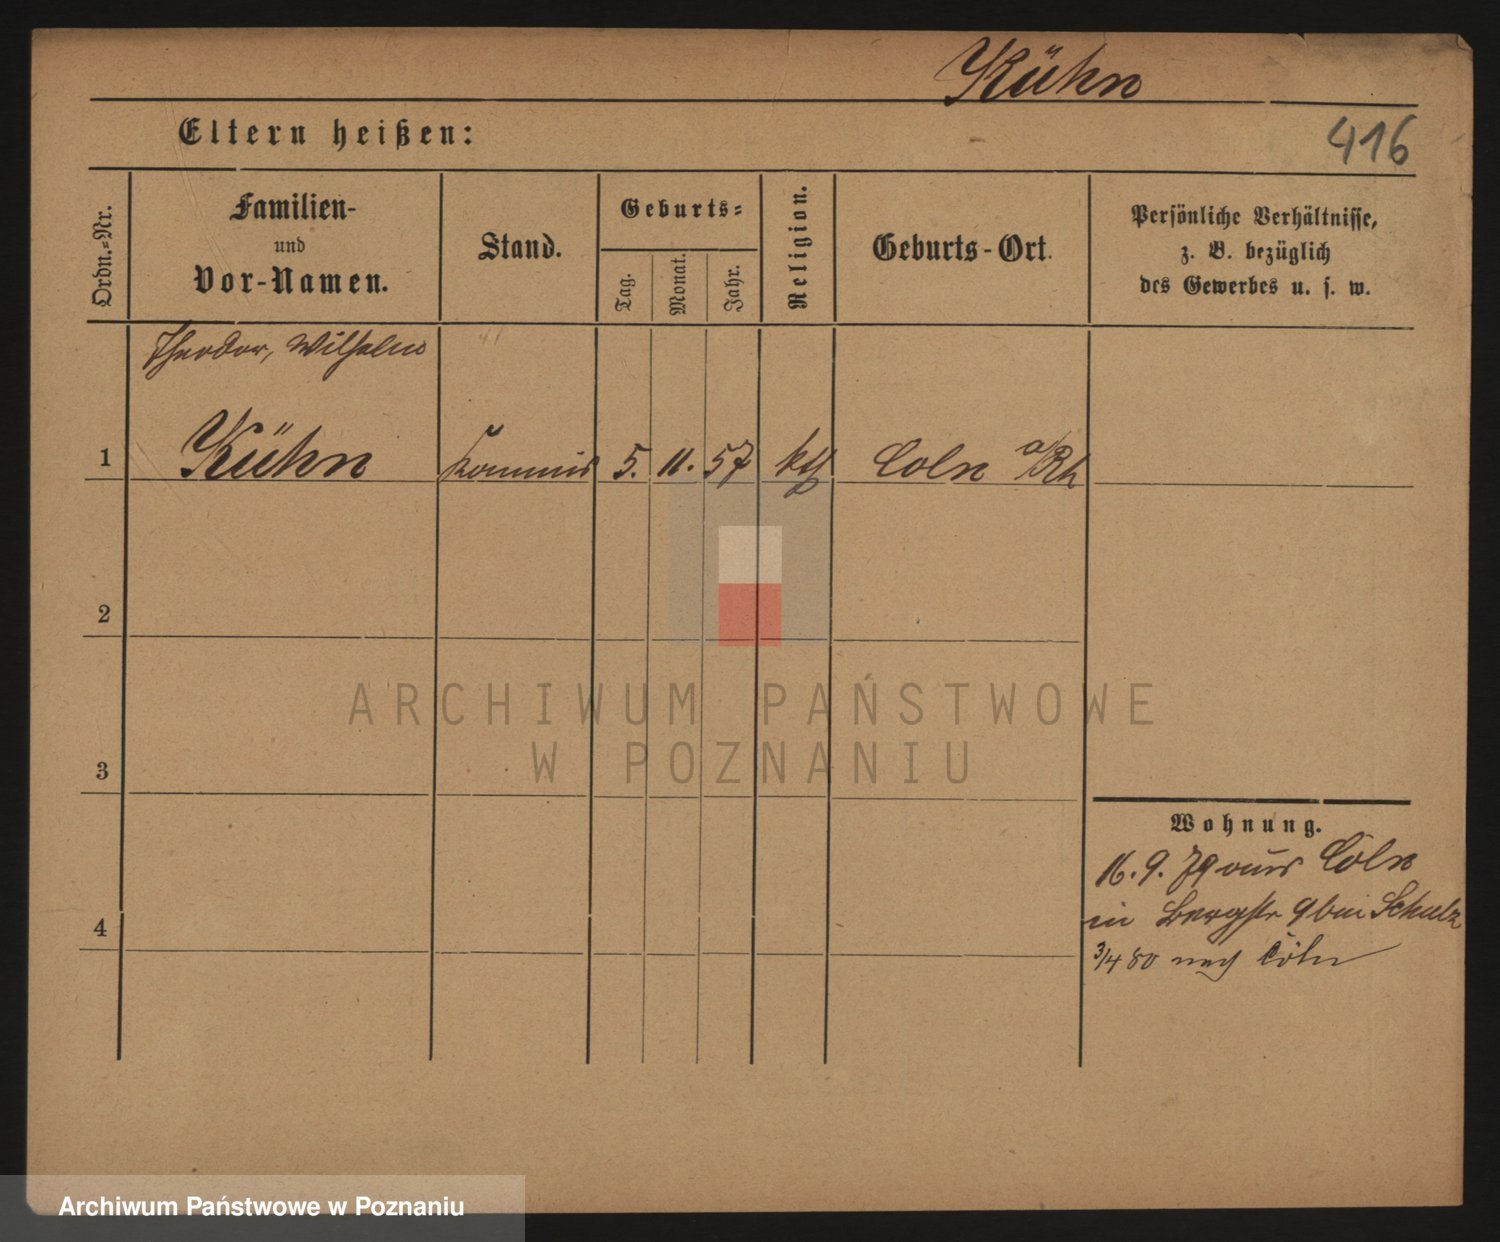 Kühn
Eltern heißen:
416
Ordn.=Nr.
Familien-
und
Vor-Namen.
Stand.
Geburts=
Tag.
Monat.
Jahr.
Religion.
Geburts-Ort.
Persönliche Verhältnisse,
z. B. bezüglich
des Gewerbes u. s. w.
Theodor, Wilhelm
1 Kühn Kommis 5. 11. 57 kth Coln a/Rh
2
3
4
Wohnung.
16. 9. 79 aus Cöln
in Bergstr 9 bei Schulz
3/4 80 nach Cöln
ARCHIWUM PAŃSTWOWE
W POZNANIU
Archiwum Państwowe w Poznaniu